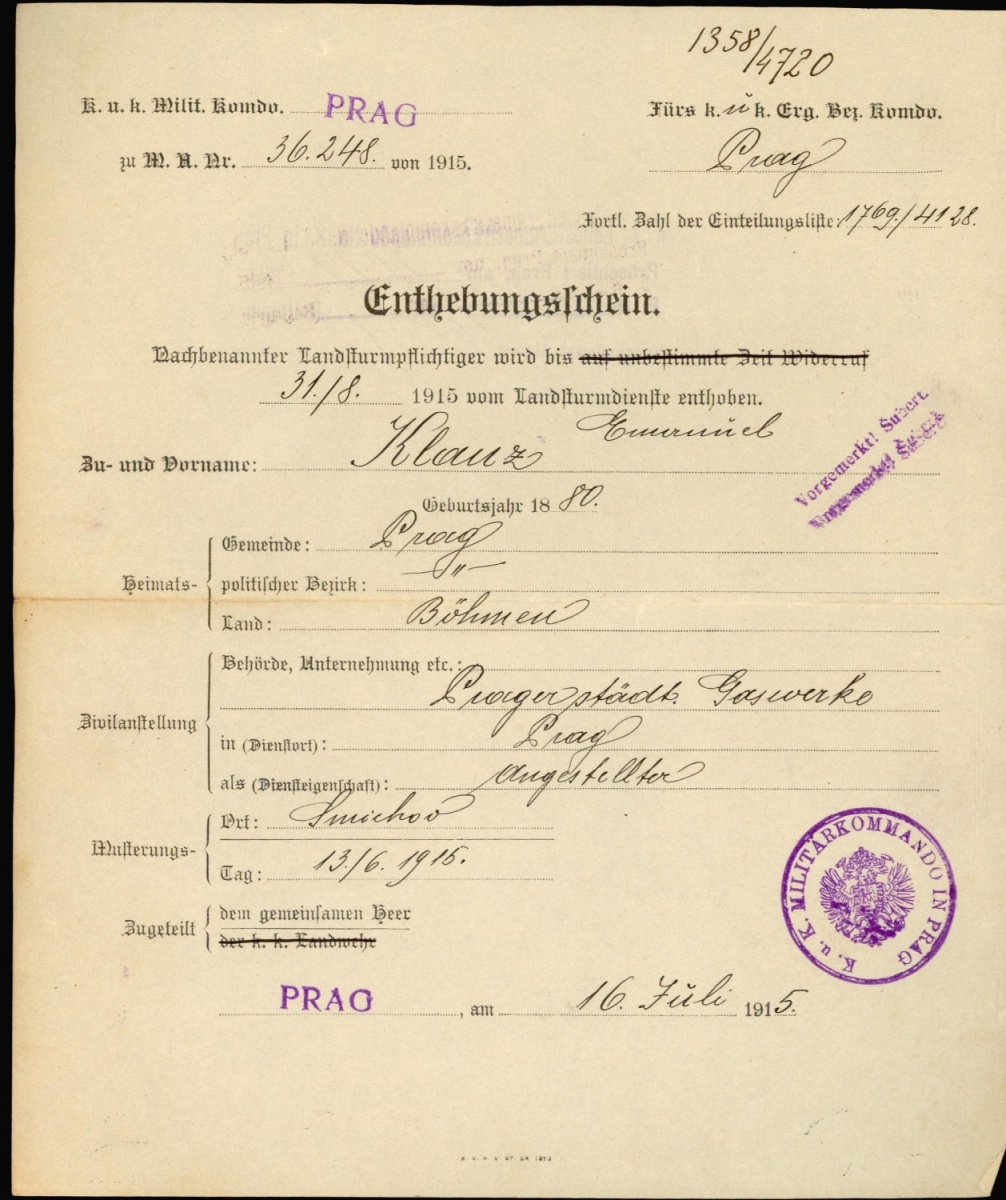 1358/4720
K. u. k. Milit. Komdo. PRAG
Fürs k. u k. Erg. Bez. Komdo.
zu M. A. Nr. 36.248. von 1915.
Prag
Fortl. Zahl der Einteilungsliste: 1769/4128.
Enthebungsschein.
Nachbenannter Landsturmpflichtiger wird bis auf unbestimmte Zeit Widerruf
31./8. 1915 vom Landsturmdienste enthoben.
Zu- und Vorname: Klauz Emanuel
Vorgemerkt! Šubert.
Vorgemerkt! Šubert
Geburtsjahr 1880.
Heimats-
Gemeinde: Prag
politischer Bezirk: —"—
Land: Böhmen
Zivilanstellung
Behörde, Unternehmung etc.:
Prager städt. Gaswerke
in (Dienstort): Prag
als (Diensteigenschaft): Angestellter
Musterungs-
Ort: Smichov
Tag: 13./6. 1915.
Zugeteilt
dem gemeinsamen Heer
der k. k. Landwehr
K. u. K. MILITÄRKOMMANDO IN PRAG
PRAG, am 16. Juli 1915.